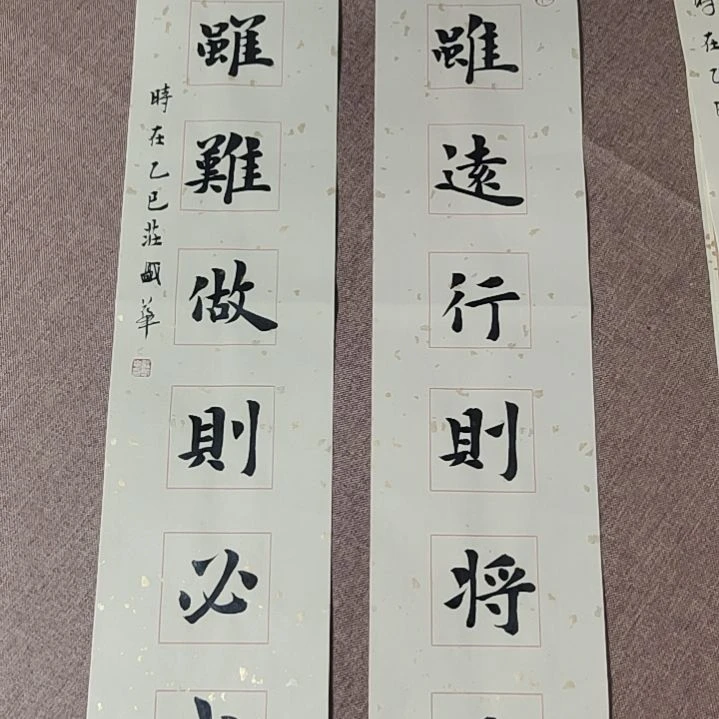 雖遠行則将
雖難做則必
時在乙巳莊國華
時在乙